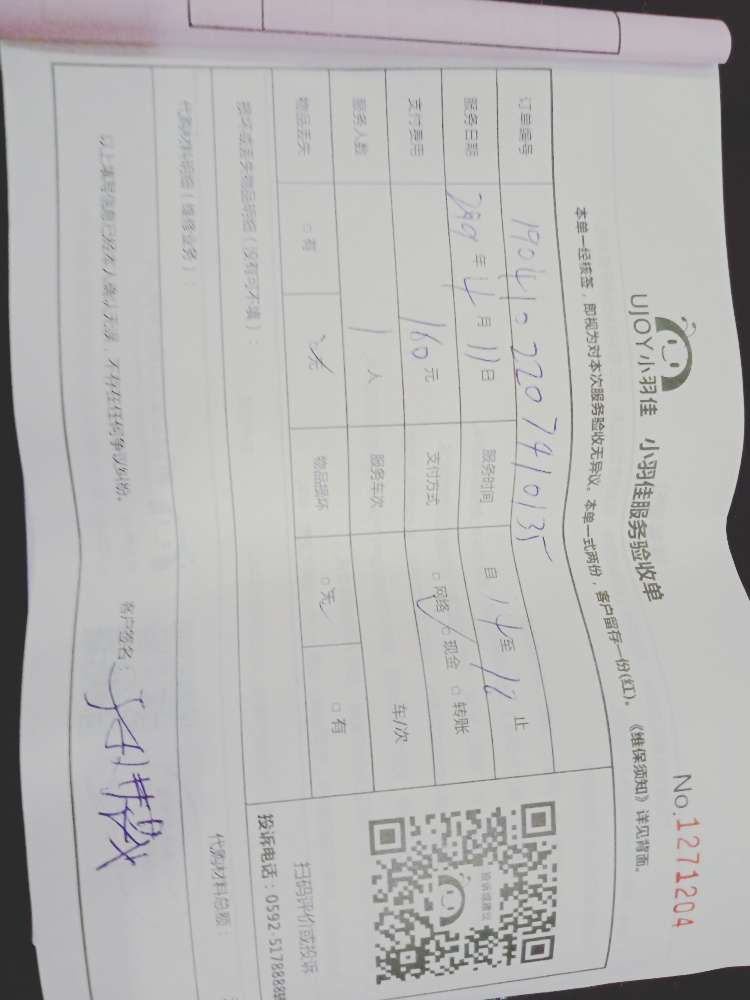 UJOY小羽佳 小羽佳服务验收单 No.1271204
本单一经核签，即视为对本次服务验收无异议。本单一式两份，客户留存一份(红)。《维保须知》详见背面。
订单编号 190410220747410135
服务日期 年 4 月 11 日 服务时间 自 14 至 止
支付费用 160 元 支付方式 □网络 □现金 □转账
服务人数 1 人 服务车次 车/次
物品丢失 □有 □无 物品损坏 □无 □有
损坏或丢失物品明细（没有可不填）：
扫码评价或投诉
投诉电话：0592-5178888
代购材料明细（维修业务）： 代购材料总额：
以上填写信息已经本人确认无误，不存在任何争议纠纷。 客户签名：
投诉或建议